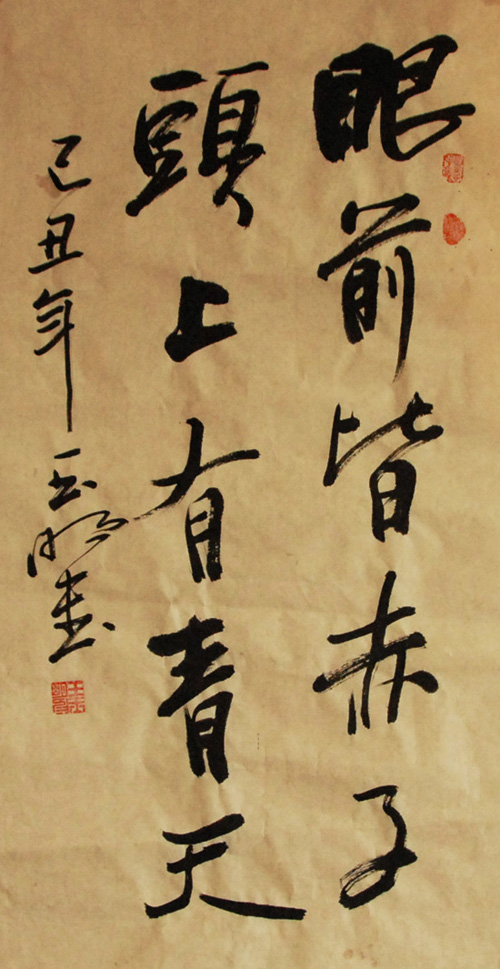 眼前皆赤子
頭上有青天
己丑年玉明書